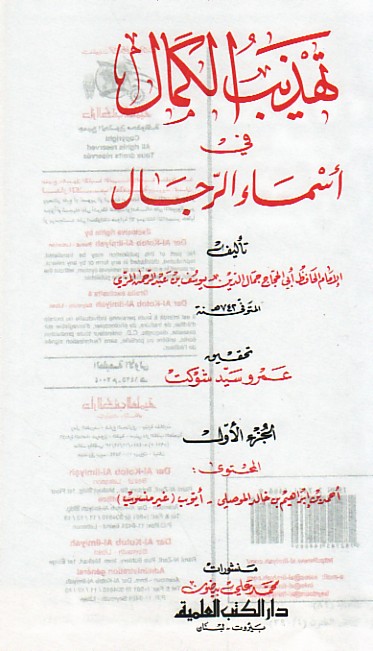 تهذيب الكمال
في
أسماء الرجال
تأليف
الإمام الحافظ أبي الحجاج جمال الدين يوسف بن عبد الرحمن المزي
المتوفى سنة ٧٤٢هـ
تحقيق
عمرو سيد شوكت
الجزء الأول
المحتوى:
أحمد بن إبراهيم بن خالد الموصلي - أيوب (غير منسوب)
منشورات
محمد علي بيضون
دار الكتب العلمية
بيروت - لبنان